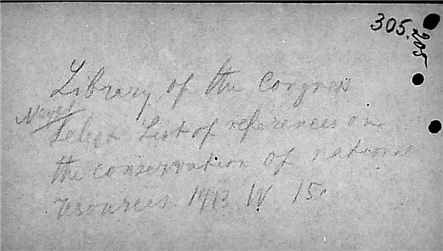 305.205
Library of the Congress
Select List of references on
the conservation of national
resources 1913 IV 15.